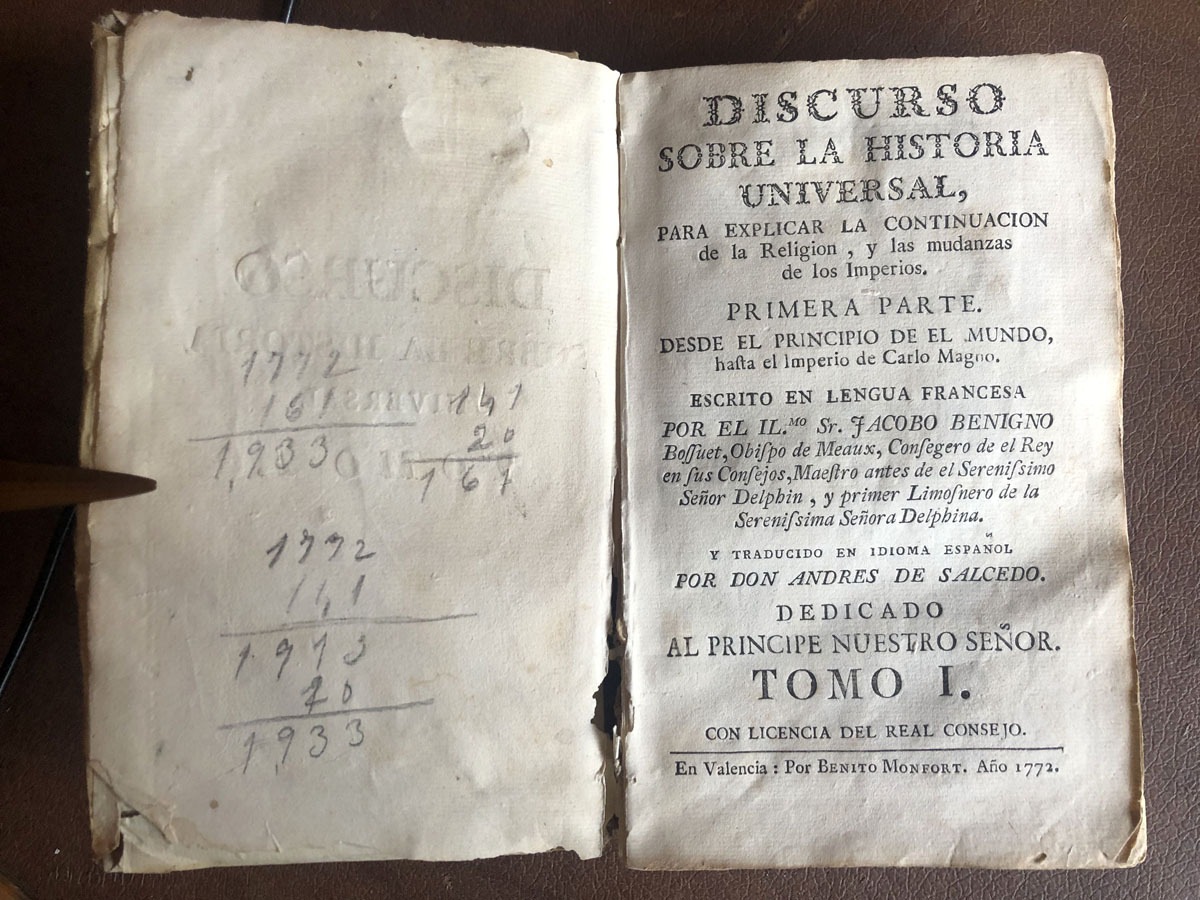 1772
161
1933
141
20
161
1772
141
1913
20
1933
DISCURSO
SOBRE LA HISTORIA
UNIVERSAL,
PARA EXPLICAR LA CONTINUACION
de la Religion, y las mudanzas
de los Imperios.
PRIMERA PARTE.
DESDE EL PRINCIPIO DE EL MUNDO,
haſta el Imperio de Carlo Magno.
ESCRITO EN LENGUA FRANCESA
POR EL IL.MO Sr. JACOBO BENIGNO
Boſſuet, Obiſpo de Meaux, Conſegero de el Rey
en ſus Conſejos, Maeſtro antes de el Sereniſsimo
Señor Delphin, y primer Limoſnero de la
Sereniſsima Señora Delphina.
Y TRADUCIDO EN IDIOMA ESPAÑOL
POR DON ANDRES DE SALCEDO.
DEDICADO
AL PRINCIPE NUESTRO SEÑOR.
TOMO I.
CON LICENCIA DEL REAL CONSEJO.
En Valencia: Por BENITO MONFORT. Año 1772.